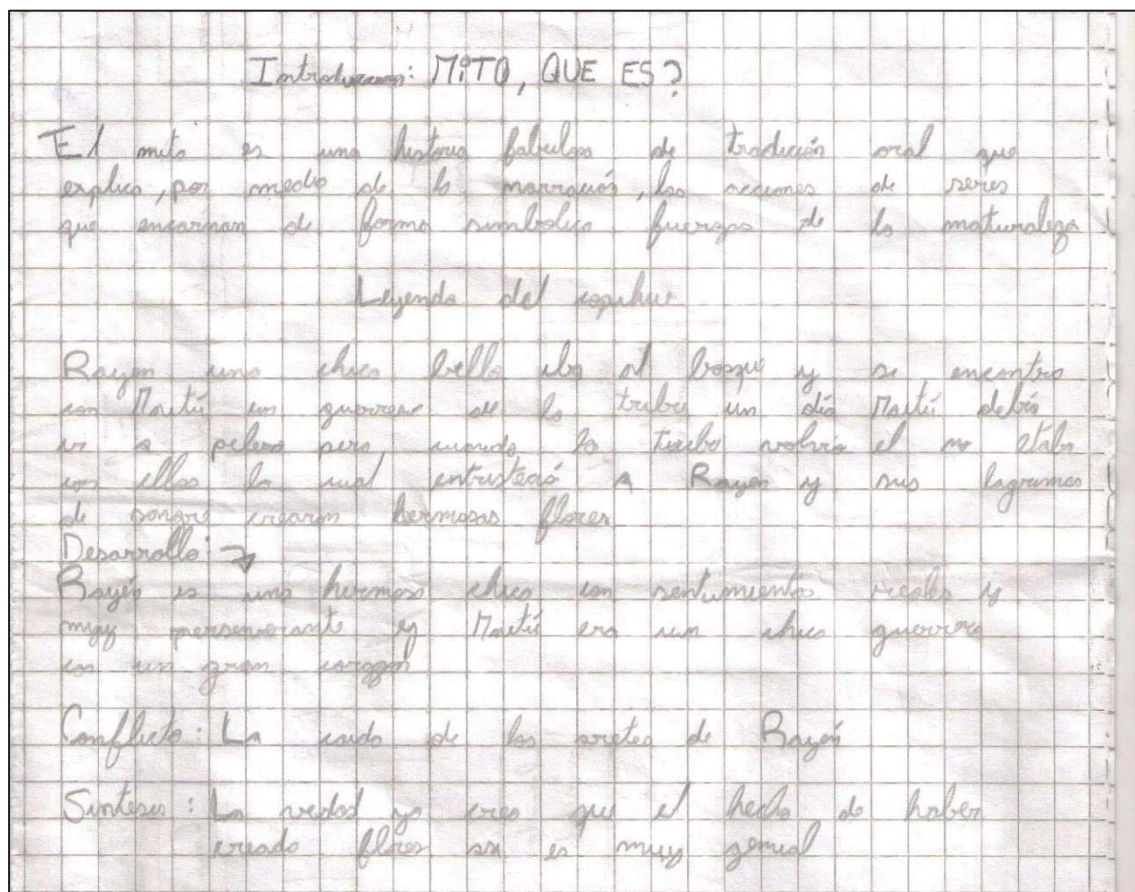 Introduccion: MiTO, QUE ES?
El mito es una historia fabulosa de tradición oral que
explica, por medio de la narración, las acciones de seres
que encarnan de forma simbolica fuerzas de la naturaleza
Leyenda del copihue
Rayen una chica bella iba al bosque y se encontro
con Maitú un guerrero de la tribu un día Maitú debía
ir a pelear pero, cuando la tribu volvió el no staba
con ellos lo cual entristeció A Rayen y sus lagrimas
de sangre crearon hermosas flores
Desarrollo:
Rayén es una hermosa chica con sentimientos reales y
muy perseverante y Maitú era un chico guerrero
con un gran corazon
Conflicto: La caida de los aretes de Rayén
Sintesis: La verdad yo creo que el hecho de haber
creado flores es muy genial